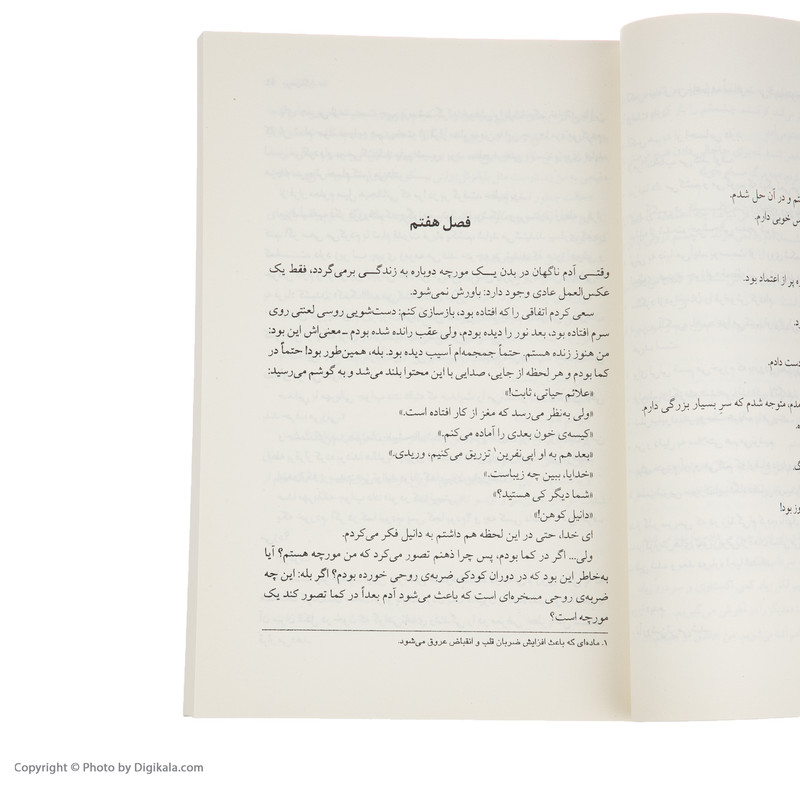 تم و در آن حل شدم.
س خوبی دارم.
ه پر از اعتماد بود.
د.
دست دادم.
دم، متوجه شدم که سرِ بسیار بزرگی دارم.
ه.
گ.
وز بود!
فصل هفتم
وقتــی آدم ناگهان در بدن یــک مورچه دوباره به زندگــی برمی‌گردد، فقط یک
عکس‌العمل عادی وجود دارد: باورش نمی‌شود.
سعی کردم اتفاقی را که افتاده بود، بازسازی کنم: دست‌شویی روسی لعنتی روی
سرم افتاده بود، بعد نور را دیده بودم، ولی عقب رانده شده بودم ــ معنی‌اش این بود:
من هنوز زنده هستم. حتماً جمجمه‌ام آسیب دیده بود. بله، همین‌طور بود! حتماً در
کما بودم و هر لحظه از جایی، صدایی با این محتوا بلند می‌شد و به گوشم می‌رسید:
«علائم حیاتی، ثابت!»
«ولی به‌نظر می‌رسد که مغز از کار افتاده است.»
«کیسه‌ی خون بعدی را آماده می‌کنم.»
«بعد هم به او اپی‌نفرین۱ تزریق می‌کنیم، وریدی.»
«خدایا، ببین چه زیباست.»
«شما دیگر کی هستید؟»
«دانیل کوهن!»
ای خدا، حتی در این لحظه هم داشتم به دانیل فکر می‌کردم.
ولی... اگر در کما بودم، پس چرا ذهنم تصور می‌کرد که من مورچه هستم؟ آیا
به‌خاطر این بود که در دوران کودکی ضربه‌ی روحی خورده بودم؟ اگر بله: این چه
ضربه‌ی روحی مسخره‌ای است که باعث می‌شود آدم بعداً در کما تصور کند یک
مورچه است؟
۱. ماده‌ای که باعث افزایش ضربان قلب و انقباض عروق می‌شود.
Copyright © Photo by Digikala.com